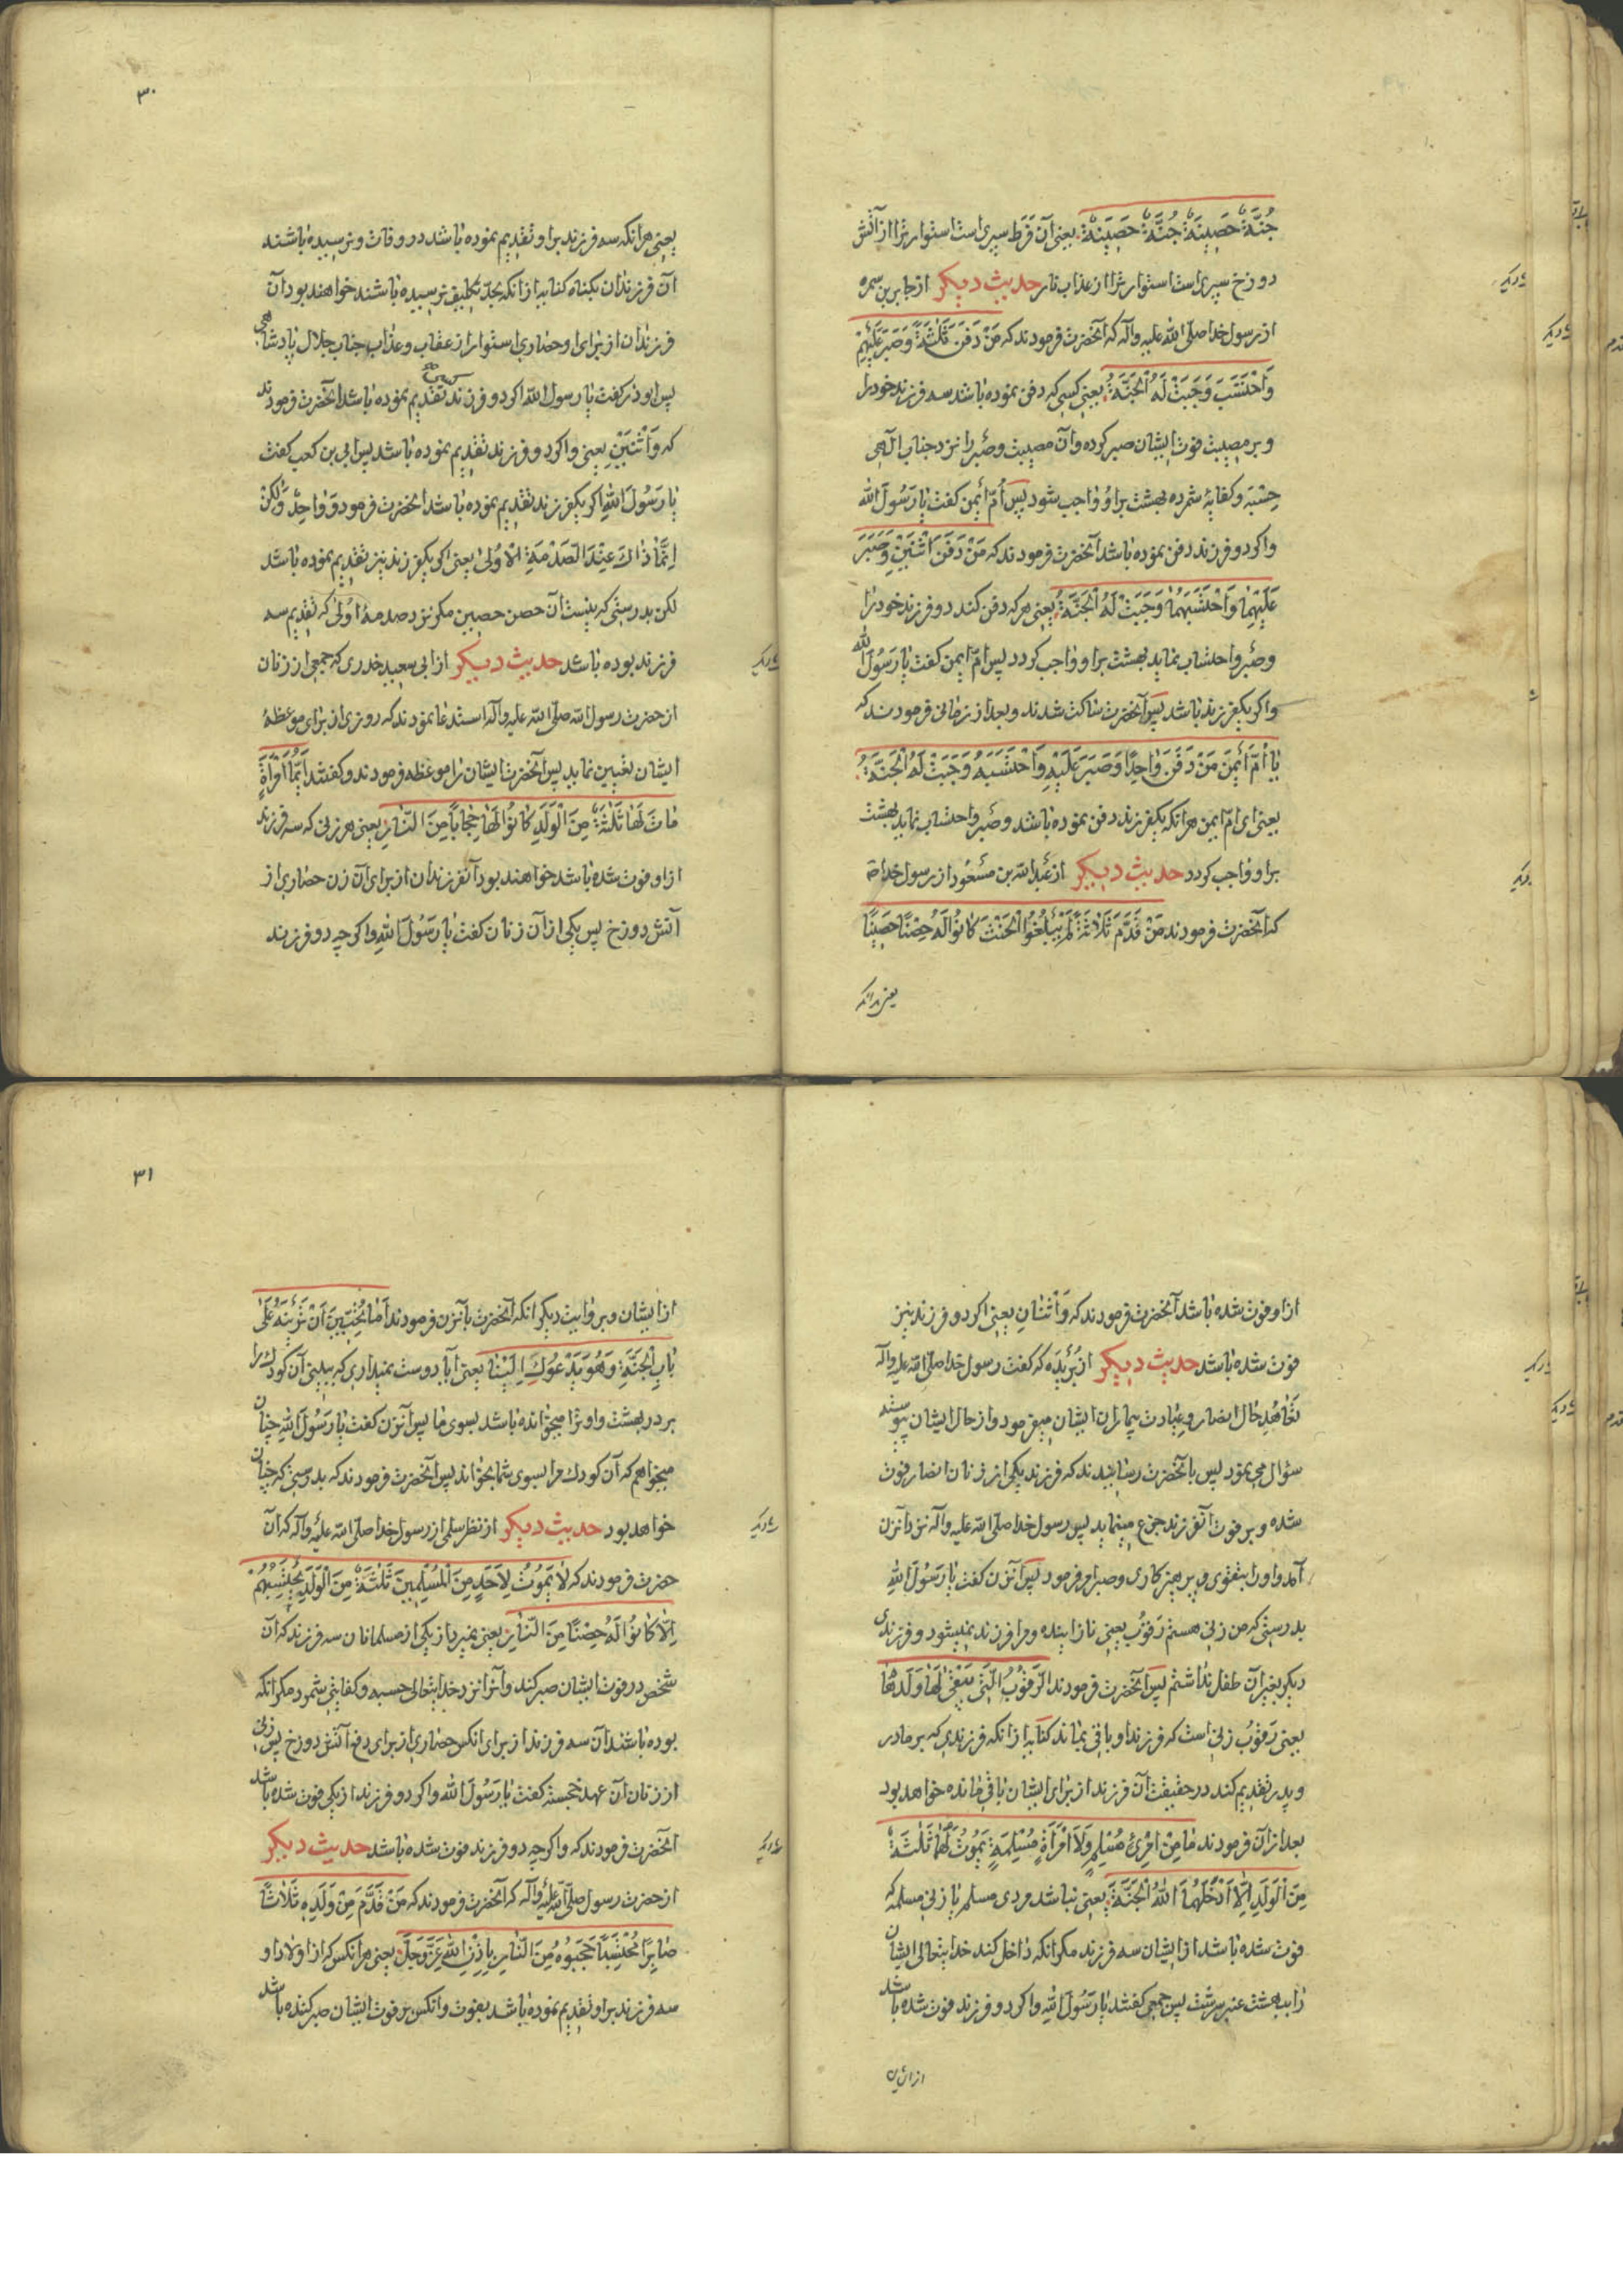 جُنَّةٌ حَصِينَةٌ جُنَّةٌ حَصِينَةٌ یعنی آن فرط سپری است استوار ترا از آتش
دوزخ سپری است استوار ترا از عذاب نار حدیث دیکر از جابر بن سمره
از رسول خدا صلّی الله علیه واله که آنحضرت فرمودند که مَنْ دَفَنَ ثَلٰثَةً وَصَبَرَ عَلَيْهِمْ
وَاحْتَسَبَ وَجَبَتْ لَهُ الْجَنَّةُ یعنی کسی که دفن نموده باشد سه فرزند خود را
و بر مصیبت فوت ایشان صبر کرده و آن مصیبت و صبر را نزد جناب الٓهی
حِسْبَه و کفایه شمرده بهشت بر او واجب شود پس اُمّ اَیمن کفت یا رَسُولَ الله
و اکر دو فرزند دفن نموده باشد آنحضرت فرمودند که مَنْ دَفَنَ اثْنَيْنِ وَصَبَرَ
عَلَيْهِمَا وَاحْتَسَبَهُمَا وَجَبَتْ لَهُ الْجَنَّةُ یعنی هر که دفن کند دو فرزند خود را
و صبر و احتساب نماید بهشت بر او واجب کردد پس امّ ایمن کفت یا رَسُولَ الله
و اکر یکفرزند باشد پس آنحضرت ساکت شدند و بعد از زمانی فرمودند که
يَا أُمَّ أَيْمَنَ مَنْ دَفَنَ وَاحِدًا وَصَبَرَ عَلَيْهِ وَاحْتَسَبَهُ وَجَبَتْ لَهُ الْجَنَّةُ
یعنی ای امّ ایمن هر انکه یکفرزند دفن نموده باشد و صبر و احتساب نماید بهشت
بر او واجب کردد حدیث دیکر از عبد الله بن مسعُود از رسول خدا ص
که آنحضرت فرمودند مَنْ قَدَّمَ ثَلَاثَةً لَمْ يَبْلُغُوا الْحِنْثَ كَانُوا لَهُ حِصْنًا حَصِينًا
یعنی هر انکه
۳۰
یعنی هر انکه سه فرزند بر او تقدیم نموده باشد در وفات و نرسیده باشند
آن فرزندان بکناه کنایه از انکه بحدّ تکلیف نرسیده باشند خواهند بود آن
فرزندان از برای او حصاری استوار از عقاب و عذاب جناب جلال پادشاهی
پس ابوذر کفت یا رسول الله اکر دو فرزند تقدیم نموده باشد آنحضرت فرمودند
که وَاثْنَيْنِ یعنی و اکر دو فرزند تقدیم نموده باشد پس ابی بن کعب کفت
یا رَسُولَ اللهِ اکر یکفرزند تقدیم نموده باشد انحضرت فرمود وَوَاحِدٌ وَلٰكِنْ
اِنَّمَا ذَاكَ عِنْدَ الصَّدْمَةِ الْاُولىٰ یعنی اکر یکفرزند نیز تقدیم نموده باشد
لکن بدرستی که نیست آن حصن حصین مکر نزد صدمهٔ اولی که تقدیم سه
فرزند بوده باشد حدیث دیکر از ابی سعید خدری که جمعی از زنان
از حضرت رسول الله صلّی الله علیه وآله استدعا نمودند که روزی از برای موعظهٔ
ایشان تعیین نماید پس آنحضرت ایشان را موعظه فرمودند و کفتند اَيُّمَا امْرَأَةٍ
مَاتَ لَهَا ثَلٰثَةٌ مِنَ الْوَلَدِ كَانُوا لَهَا حِجَابًا مِنَ النَّارِ یعنی هر زنی که سه فرزند
از او فوت شده باشد خواهند بود آنفرزندان از برای آن زن حصاری از
آتش دوزخ پس یکی از آن زنان کفت یا رَسُولَ اللهِ و اکر چه دو فرزند
از او فوت شده باشد آنحضرت فرمودند که وَاثْنَانِ یعنی اکر دو فرزند نیز
فوت شده باشد حدیث دیکر از بُرَیدَه که کفت رسول خدا صلّی الله علیه وآله
تعاهد حال انصار و عیادت بیماران ایشان میفرمود و از حال ایشان پیوسته
سؤال می نمود پس با آنحضرت رسانیدند که فرزند یکی از زنان انصار فوت
شده و بر فوت آنفرزند جزع مینماید پس رسول خدا صلّی الله علیه وآله نزد آنزن
آمد و او را بتقوی و پرهیزکاری و صبر امر فرمود پس آنزن کفت یا رَسُولَ اللهِ
بدرستی که من زنی هستم رَقُوب یعنی نازاینده و مرا فرزند نمیشود و فرزندی
دیکر بغیر آن طفل نداشتم پس آنحضرت فرمودند الرَّقُوبُ الَّتِي يَبْقىٰ لَهَا وَلَدُهَا
یعنی رَقوُب زنی است که فرزند او باقی بماند کنایه از انکه فرزندی که بر مادر
و پدر تقدیم کند در حقیقت آن فرزند از برای ایشان باقی مانده خواهد بود
بعد از آن فرمودند مَا مِنْ امْرِئٍ مُسْلِمٍ وَلَا امْرَأَةٍ مُسْلِمَةٍ يَمُوتُ لَهُمَا ثَلٰثَةٌ
مِنَ الْوَلَدِ اِلَّا اَدْخَلَهُمَا اللهُ الْجَنَّةَ یعنی نباشد مردی مسلم یا زنی مسلمه که
فوت شده باشد از ایشان سه فرزند مکر انکه داخل کند خدایتعالی ایشان
را ببهشت عنبر سرشت پس جمعی کفتند یا رَسُولَ اللهِ و اکر دو فرزند فوت شده باشد
از ایشان
۳۱
از ایشان و بر وایت دیکر انکه آنحضرت بآنزن فرمودند اَمَا تُحِبِّينَ اَنْ تَرَيْنَهُ عَلىٰ
بَابِ الْجَنَّةِ وَهُوَ يَدْعُوكِ اِلَيْنَا یعنی آیا دوست نمیداری که ببینی آن کودک را
بر در بهشت و او ترا میخوانده باشد بسوی ما پس آنزن کفت یا رَسُولَ اللهِ چنان
میخواهم که آن کودک مرا بسوی شما بخواند پس آنحضرت فرمودند که بدرستی که چنان
خواهد بود حدیث دیکر از نظر سلمی از رسول خدا صلّی الله علیه وآله که آن
حضرت فرمودند که لَا يَمُوتُ لِاَحَدٍ مِنَ الْمُسْلِمِينَ ثَلٰثَةٌ مِنَ الْوَلَدِ يَحْتَسِبُهُمْ
اِلَّا كَانُوا لَهُ حِصْنًا مِنَ النَّارِ یعنی نمیرد از یکی از مسلمانان سه فرزند که آن
شخص در فوت ایشان صبر کند و آنرا نزد خدایتعالی حسبه و کفایتی شمرد مکر انکه
بوده باشند آن سه فرزند از برای انکس حصاری از برای دفع آتش دوزخ پس زنی
از زنان آن عهد خجسته کفت یا رَسُولَ الله و اکر دو فرزند از یکی فوت شده باشد
انحضرت فرمودند که و اکر چه دو فرزند فوت شده باشد حدیث دیکر
از حضرت رسول صلّی الله علیه وآله که آنحضرت فرمودند که مَنْ قَدَّمَ مِنْ وَلَدِهِ ثَلَاثًا
صَابِرًا مُحْتَسِبًا حَجَبُوهُ مِنَ النَّارِ بِاِذْنِ اللهِ عَزَّ وَجَلَّ یعنی هر انکس که از اولاد او
سه فرزند بر او تقدیم نموده باشد بفوت و انکس بر فوت ایشان صبر کننده باشد